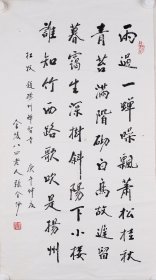 雨過一蟬噪飄蕭松桂秋
青苔滿階砌白鳥故遲留
暮靄生深樹斜陽下小樓
誰知竹西路歌吹是揚州
杜牧題揚州禪智寺 庚午仲夏
金陵八四老人張